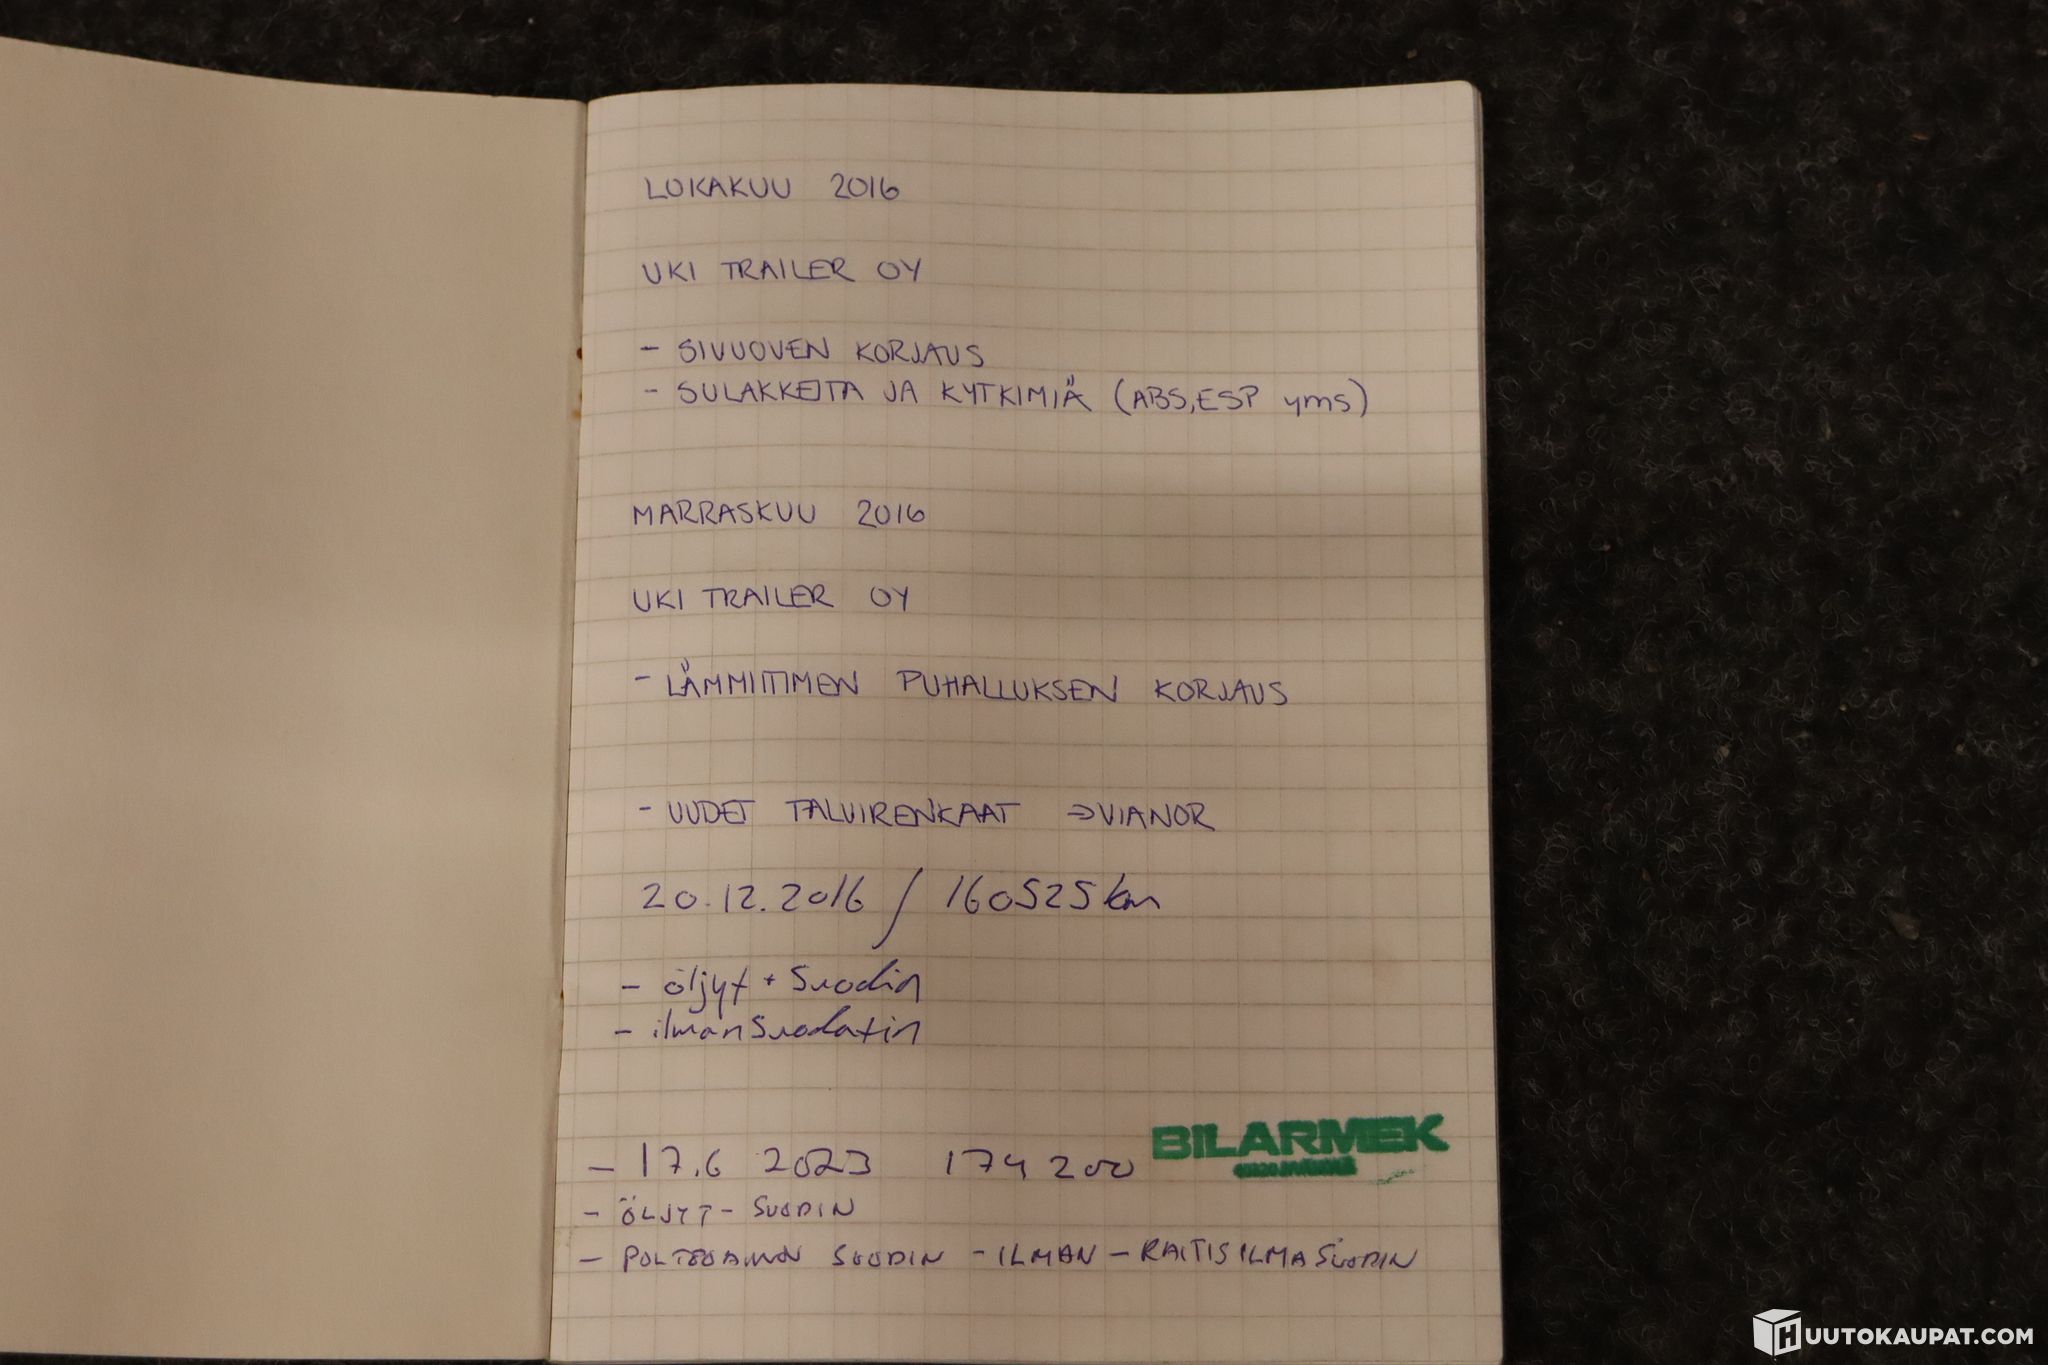 LOKAKUU 2016
UKI TRAILER OY
- SIVUOVEN KORJAUS
- SULAKKEITA JA KYTKIMIÄ (ABS,ESP yms)
MARRASKUU 2016
UKI TRAILER OY
- LÄMMITTIMEN PUHALLUKSEN KORJAUS
- UUDET TALVIRENKAAT => VIANOR
20.12.2016 / 160525 km
- öljyt + Suodin
- ilmanSuodatin
BILARMEK
- 17.6 2023 174 200
- ÖLJYT - SUODIN
- POLTTOAINEN SUODIN - ILMAN - RAITISILMASUODIN
HUUTOKAUPAT.COM